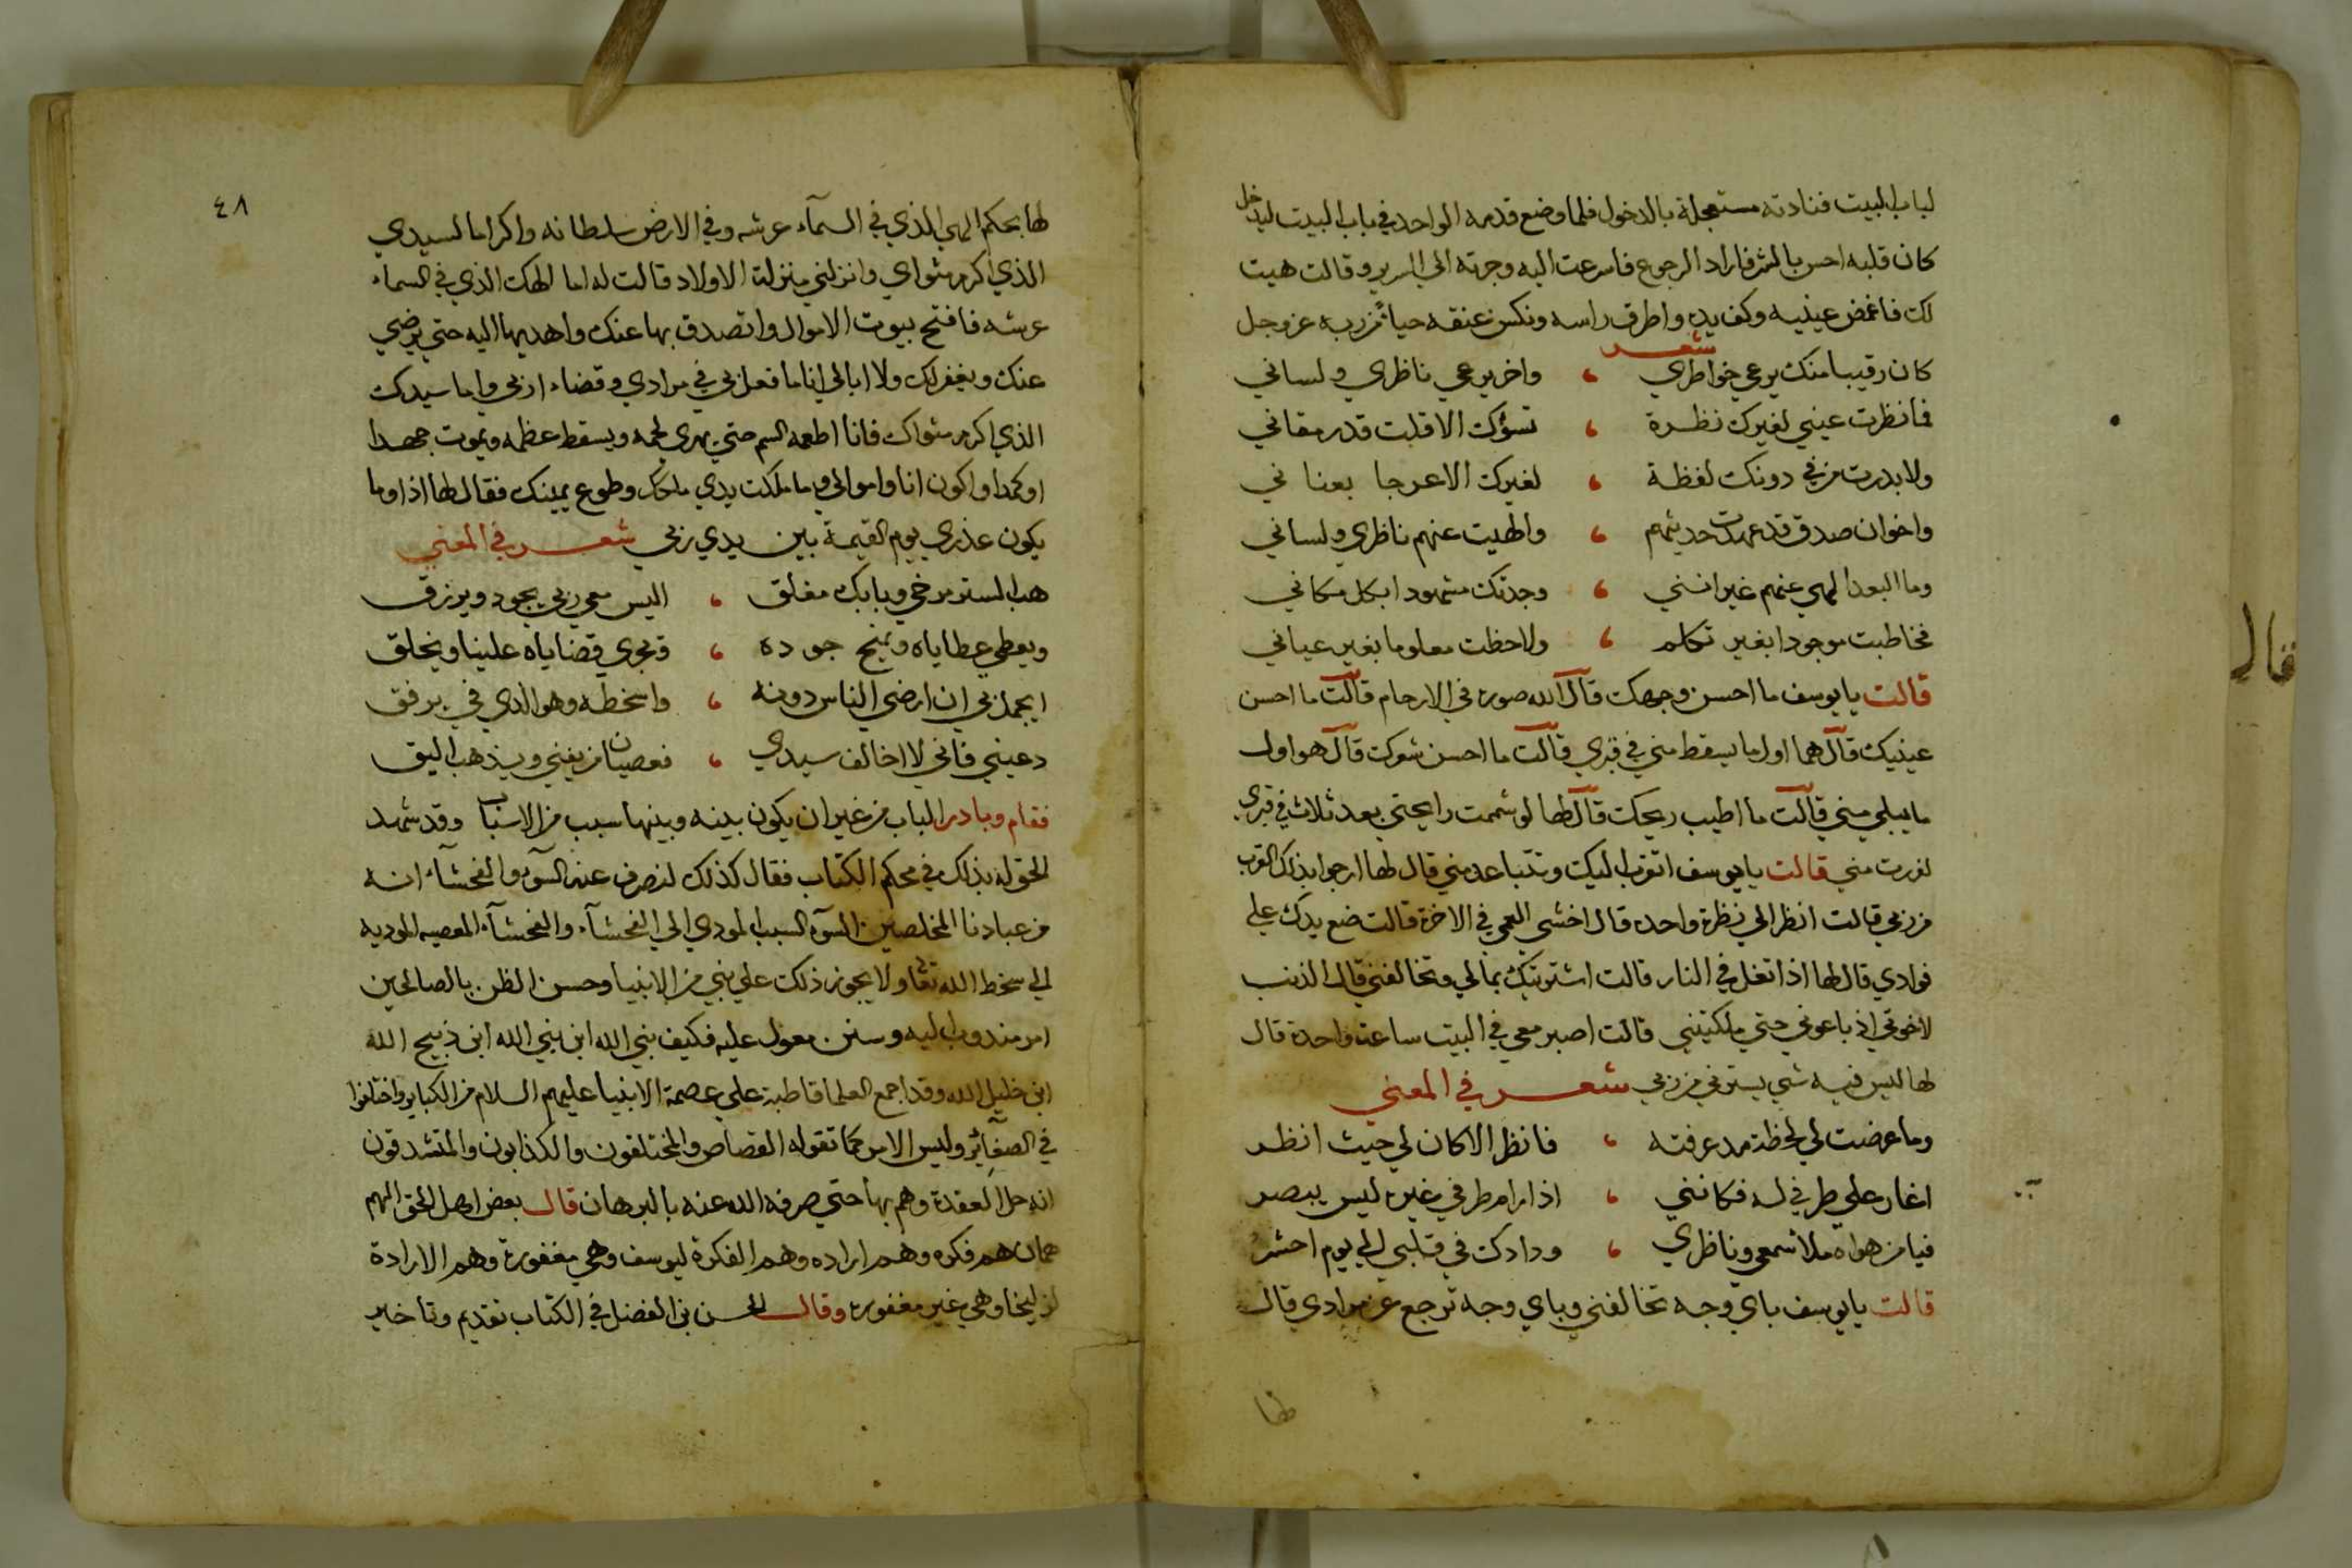 لباب البيت فنادته مستعجلة بالدخول فلما وضع قدمه الواحد في باب البيت ليدخل
كان قلبه احس بالشر فاراد الرجوع فاسرعت اليه وجرته الي السرير وقالت هيت
لك فاغمض عينيه وكف يده واطرق راسه ونكس عنقه حياءً من ربه عز وجل
شعر
كان رقيبا منك يرعي خواطري ، واخر يرعي ناظري ولساني
فما نظرت عيني لغيرك نظرة ، تسؤك الا قلت قد رمقاني
ولا بدرت من في دونك لفظة ، لغيرك الا عرجا بعناني
واخوان صدق قد عهدت حديثهم ، والهيت عنهم ناظري ولساني
وما البعد الهي عنهم غير انني ، وجدتك مشهودا بكل مكاني
فخاطبت موجودا بغير تكلم ، ولاحظت معلوما بغير عياني
قالت يا يوسف ما احسن وجهك قال الله صوره في الارحام قالت ما احسن
عينيك قال هما اول ما يسقط مني في قبري قالت ما احسن شعرك قال هو اول
ما يبلي مني قالت ما اطيب ريحك قال لها لو شممت رايحتي بعد ثلاث في قبري
لفررت مني قالت يا يوسف اتقرب اليك وتتباعد مني قال لها ارجوا بذلك القرب
من ربي قالت انظر الي نظرة واحده قال اخشي العمي في الاخرة قالت ضع يدك علي
فوادي قال لها اذا تغل في النار قالت اشتريتك بمالي وتخالفني قال الذنب
لاخوتي اذ باعوني حتي ملكتيني قالت اصبر معي في البيت ساعة واحدة قال
لها ليس فيه شي يسترني من ربي شعر في المعني
وما عرضت لي لحظة مد عرفته ، فانظر الا كان لي حيث انظر
اغار علي طرفي له فكانني ، اذا رام طرفي غيره ليس يبصر
فيا من هواه ملا سمعي وناظري ، ودادك في قلبي الي يوم احشر
قالت يا يوسف باي وجه تخالفني وباي وجه ترجع عن مرادي قال
لها
٤٨
لها بحكم الهي الذي في السمآء عرشه وفي الارض سلطانه واكراما لسيدي
الذي اكرم مثواي وانزلني منزلة الاولاد قالت له اما الهك الذي في السماء
عرشه فافتح بيوت الاموال واتصدق بها عنك واهديها اليه حتي يرضي
عنك ويغفر لك ولا ابالي انا ما فعل بي في مرادي وقضاء اربي واما سيدك
الذي اكرم مثواك فانا اطعمه السم حتي يهري لحمه ويسقط عظمه ويموت جهدا
اوكمدا واكون انا واموالي وما ملكت يدي ملكك وطوع يمينك فقال لها اذا وما
يكون عذري يوم القيمة بين يدي ربي شعر في المعني
هب الستر مرخي وبابك مغلق ، اليس معي ربي يجود ويرزق
ويعطي عطاياه ويمنح جوده ، وتجري قضاياه علينا ويخلق
ايجمل بي ان ارضي الناس دونه ، واسخطه وهو الذي في يرفق
دعيني فاني لا اخالف سيدي ، فعصيان من يفني ويذهب اليق
فقام وبادر الباب من غير ان يكون بينه وبينها سبب من الاسباب وقد شهد
الحق له بذلك في محكم الكتاب فقال كذلك لنصرف عنه السوء والفحشآء انه
من عبادنا المخلصين السوء السبب المودي الي الفحشآء والفحشآء المعصيه الموديه
الي سخط الله تعالى ولا يجوز ذلك علي نبي من الانبيا وحسن الظن بالصالحين
امر مندوب اليه وسنن معول عليه فكيف بنبي الله ابن نبي الله ابن ذبيح الله
ابن خليل الله وقد اجمع العلما قاطبة علي عصمة الانبيا عليهم السلام من الكباير واختلفوا
في الصغآئر وليس الامر كما تقوله القصاص والمختلقون والكذابون والمتشدقون
انه حل العقدة وهم بها حتي صرفه الله عنه بالبرهان قال بعض اهل الحق الهم
همان هم فكره وهم اراده وهم الفكرة ليوسف وهي مغفورة وهم الارادة
لزليخا وهي غير مغفوره وقال الحسن بن الفضل في الكتاب تقديم وتاخير
فقال